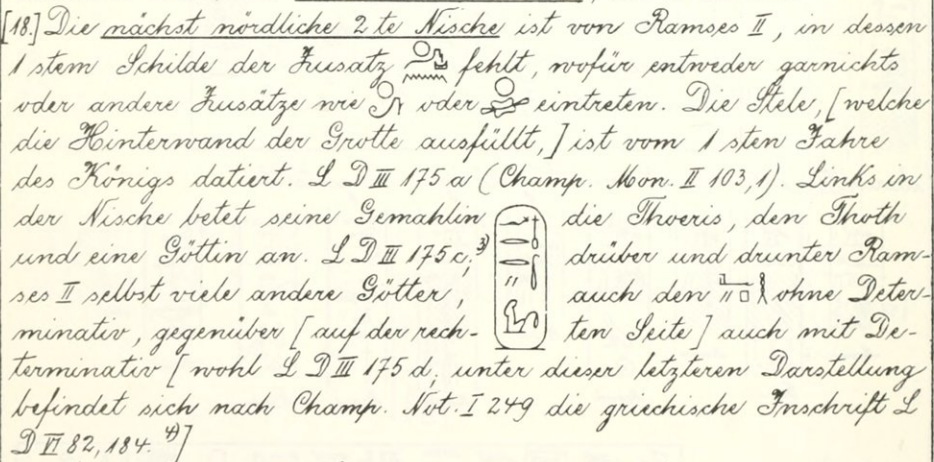 [18.] Die nächst nördliche 2te Nische ist von Ramses II, in dessen
1stem Schilde der Zusatz fehlt, wofür entweder garnichts
oder andere Zusätze wie oder eintreten. Die Stele, [welche
die Hinterwand der Grotte ausfüllt,] ist vom 1sten Jahre
des Königs datiert. L D III 175 a (Champ. Mon. II 103,1). Links in
der Nische betet seine Gemahlin die Thoeris, den Thoth
und eine Göttin an. L D III 175 c; 3) drüber und drunter Ram-
ses II selbst viele andere Götter, auch den ohne Deter-
minativ, gegenüber [auf der rech- ten Seite] auch mit De-
terminativ [wohl L D III 175 d; unter dieser letzteren Darstellung
befindet sich nach Champ. Not. I 249 die griechische Inschrift L
D VI 82, 184. 4)]